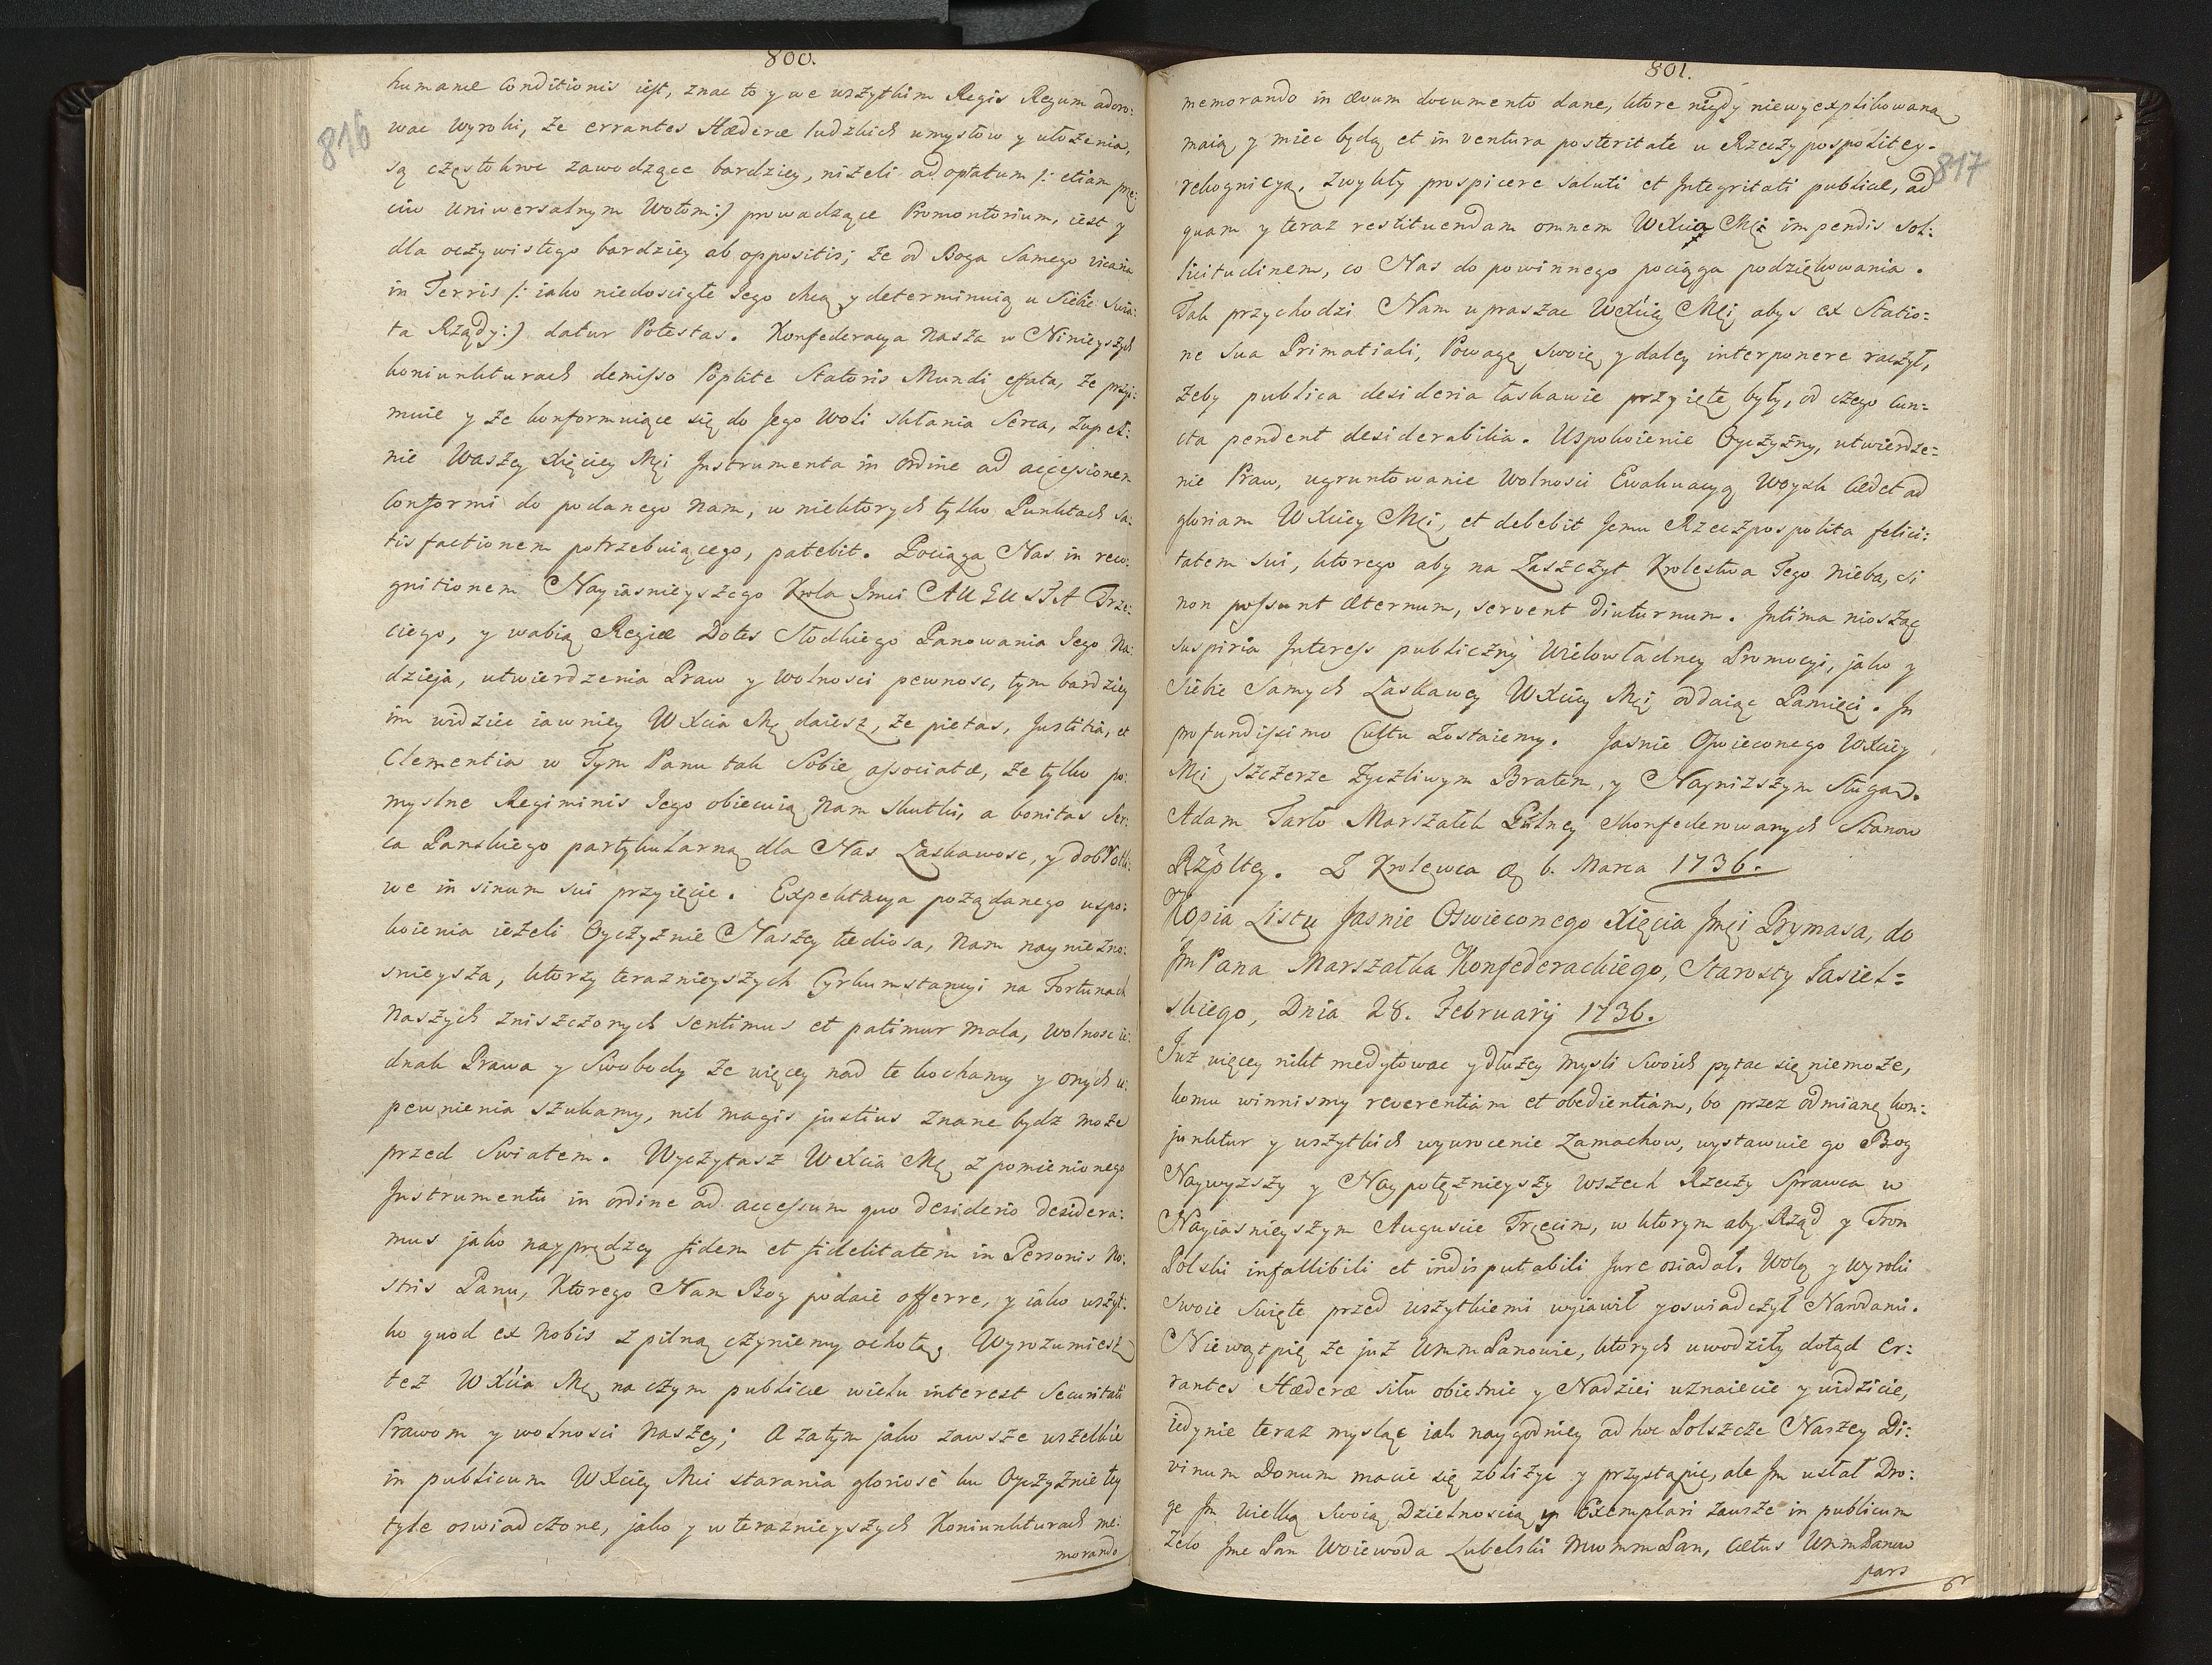 800.
816
humanæ Conditionis iest, znac to y we wszytkim Regis Regum adoro:
wac wyroki, że errantes Hæderæ ludzkich umysłow y ułożenia,
są częstokroc zawodzące bardziey, niżeli ad optatum /: etiam prze:
ciw Uniwersalnym Wotom :/ prowadzące Promontorium, iest y
dla oczywistego bardziey ab oppositis; że od Boga samego vicaria
in Terris /: iako niedoscigłe Jego chcą y determinuią u Siebie Swia:
ta Rządy :/ datur Potestas. Konfederacya nasza w Ninieyszych
koniunkturach demisso Poplite Statoris Mundi effata, że przyi:
muie y że konformuiące się do Jego Woli skłania Serca, zupeł:
nie Waszey Xięcey Mci Instrumenta in ordine ad accessionem
Conformi do podanego nam, w niektorych tylko Punktach sa:
tisfactionem potrzebuiącego, patebit. Pociąga Nas in reco:
gnitionem Nayiasnieyszego Krola Jmci AUGUSTA Trze:
ciego, y wabią Regiæ Dotes Słodkiego Panowania Jego na:
dzieja, utwierdzenia Praw y Wolnosci pewnosc, tym bardziey
im widziec iawniey WXcia Mc daiesz, że pietas, Justitia, et
Clementia w Tym Panu tak Sobie associatæ, że tylko po:
myslne Regiminis Jego obiecuią Nam skutki, a bonitas Ser:
ca Panskiego partykularną dla Nas Łaskawosc, y dobrotli:
we in sinum sui przyięcie. Expektacya pożądanego uspo:
koienia ieżeli Oyczyznie Naszey tædiosa, nam naynieżno:
snieysza, ktorzy teraznieyszych Cyrkumstancyi na Fortunach
Naszych zniszczonych sentimus et patimur mala, wolnosc ie:
dnak Prawa y Swobody że więcey nad te kochamy y onych u:
pewnienia szukamy, nil magis justius znane bydz może
przed Swiatem. Wyczytasz WXcia Mc z pomienionego
Instrumentu in ordine ad accessum quo desiderio desidera:
mus jako nayprędzey fidem et fidelitatem in Personis No:
stris Panu, Ktorego Nam Bog podaie offerre, y iako wszyt:
ko quod ex Nobis z pilną czyniemy ochotą. Wyrozumiesz
też WXcia Mc, na czym publicæ wielu interest Securitati
Prawom y wolnosci naszey; A zatym jako zawsze wszelkie
in publicum WXcey Mci starania gloriosé ku Oyczyznie tey
tyle oswiadczone, jako y w teraznieyszych Koniunkturach me:
morando
801.
817
memorando in ævum documento dane, ktore nigdy niewyexplikowaną
maią y miec będą et in ventura posteritate u Rzeczypospolitey
rekognicyą. Zwykły prospicere saluti et Integritati publicæ, ad
quam y teraz restituendam omnem WXcia Mc impendis sol:
licitudinem, co Nas do powinnego pociąga podziękowania.
Tak przychodzi Nam upraszac WXcey Mci abys ex Statio:
ne Sua Primatiali, Powagę Swoię y daley interponere raczył,
żeby publica desideria łaskawie przyięte były, od czego cun:
cta pendent desiderabilia. Uspokoienie Oyczyzny, utwierdze:
nie Praw, ugruntowanie Wolnosci Ewakuacyą Woysk cedet ad
gloriam WXcey Mci, et debebit Jemu Rzeczpospolita felici:
tatem sui, ktorego aby na Zaszczyt Krolestwa Tego nieba, si
non possunt æternum, servent diuturnum. Intima niosząc
suspiria Interess publiczny Wielowładney Promocyi, jako y
Siebie Samych Łaskawey WXcey Mci oddaiąc Pamięci. In
profundissimo Cultu zostaiemy. Jasnie Oswieconego WXcey
Mci Szczerze Życzliwym Bratem, y Nayniższym Sługą.
Adam Tarło Marszałek Gżlney skonfederowanych Stanow
Rzpltey. Z Krolewca D. 6. Marca 1736.
Kopia Listu Jasnie Oswieconego Xięcia Jmci Prymasa, do
Jm Pana Marszałka Konfederackiego, Starosty Jasiel:
skiego, Dnia 28. Februarij 1736.
Już więcey nikt medytowac y dłużey mysli Swoich pytac się niemoże,
komu winnismy reverentiam et obedientiam, bo przez odmianę kon:
junktur y wszytkich wywrocenie Zamachow, wystawuie go Bog
Naywyższy y Naypotężnieyszy wszech Rzeczy Sprawca w
Nayiasnieyszym Auguscie Trzecim, w ktorym aby Rząd y Tron
Polski infallibili et indisputabili Jure osiadał. Wolą y wyroki
Swoie Swięte przed wszytkiemi wyiawił y oswiadczył Narodami.
Niewątpię że już Wmm Panowie, ktorych uwodziły dotąd er:
rantes Hæderæ siłu obietnic y Nadziei uznaiecie y widzicie,
iedynie teraz mysląc iak naygodniey ad hoc Polszcze Naszey Di:
vinum Donum macie się zbliżyc y przystąpic, ale Jm usłał Dro:
gę Jm Wielką Swoią Dzielnoscią y Exemplari zawsze in publicum
Zelo Jmc Pan Woiewoda Lubelski Mwmm Pan, cætus Wmm Panow
pars